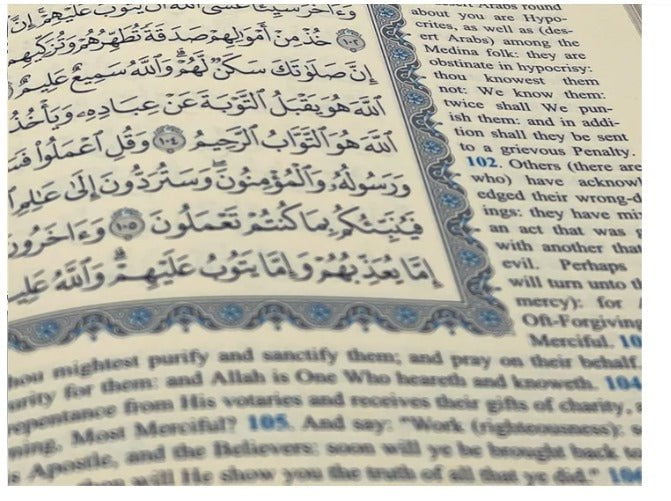 خُذْ مِنْ أَمْوَٰلِهِمْ صَدَقَةً تُطَهِّرُهُمْ وَتُزَكِّيهِم
إِنَّ صَلَوٰتَكَ سَكَنٌ لَّهُمْ وَٱللَّهُ سَمِيعٌ عَلِيمٌ
ٱللَّهَ هُوَ يَقْبَلُ ٱلتَّوْبَةَ عَنْ عِبَادِهِۦ وَيَأْخُذُ
ٱللَّهَ هُوَ ٱلتَّوَّابُ ٱلرَّحِيمُ ١٠٤ وَقُلِ ٱعْمَلُوا۟
وَرَسُولُهُۥ وَٱلْمُؤْمِنُونَ وَسَتُرَدُّونَ إِلَىٰ عَٰلِمِ
فَيُنَبِّئُكُم بِمَا كُنتُمْ تَعْمَلُونَ ١٠٥ وَءَاخَرُونَ
إِمَّا يُعَذِّبُهُمْ وَإِمَّا يَتُوبُ عَلَيْهِمْ وَٱللَّهُ
Arabs round
about you are Hypo-
crites, as well as (des-
ert Arabs) among the
Medina folk: they are
obstinate in hypocrisy:
thou knowest them
not: We know them:
twice shall We pun-
ish them: and in addi-
tion shall they be sent
to a grievous Penalty.
102. Others (there are
who) have acknowl
edged their wrong-d
ings: they have mi
an act that was
with another that
evil. Perhaps
will turn unto
mercy): for
Oft-Forgiving
Merciful. 10
hou mightest purify and sanctify them; and pray on their behalf.
urity for them: and Allah is One Who heareth and knoweth. 104
epentance from His votaries and receives their gifts of charity,
ning, Most Merciful? 105. And say: "Work (righteousness):
Apostle, and the Believers: soon will ye be brought back to
will He show you the truth of all that ye did." 106